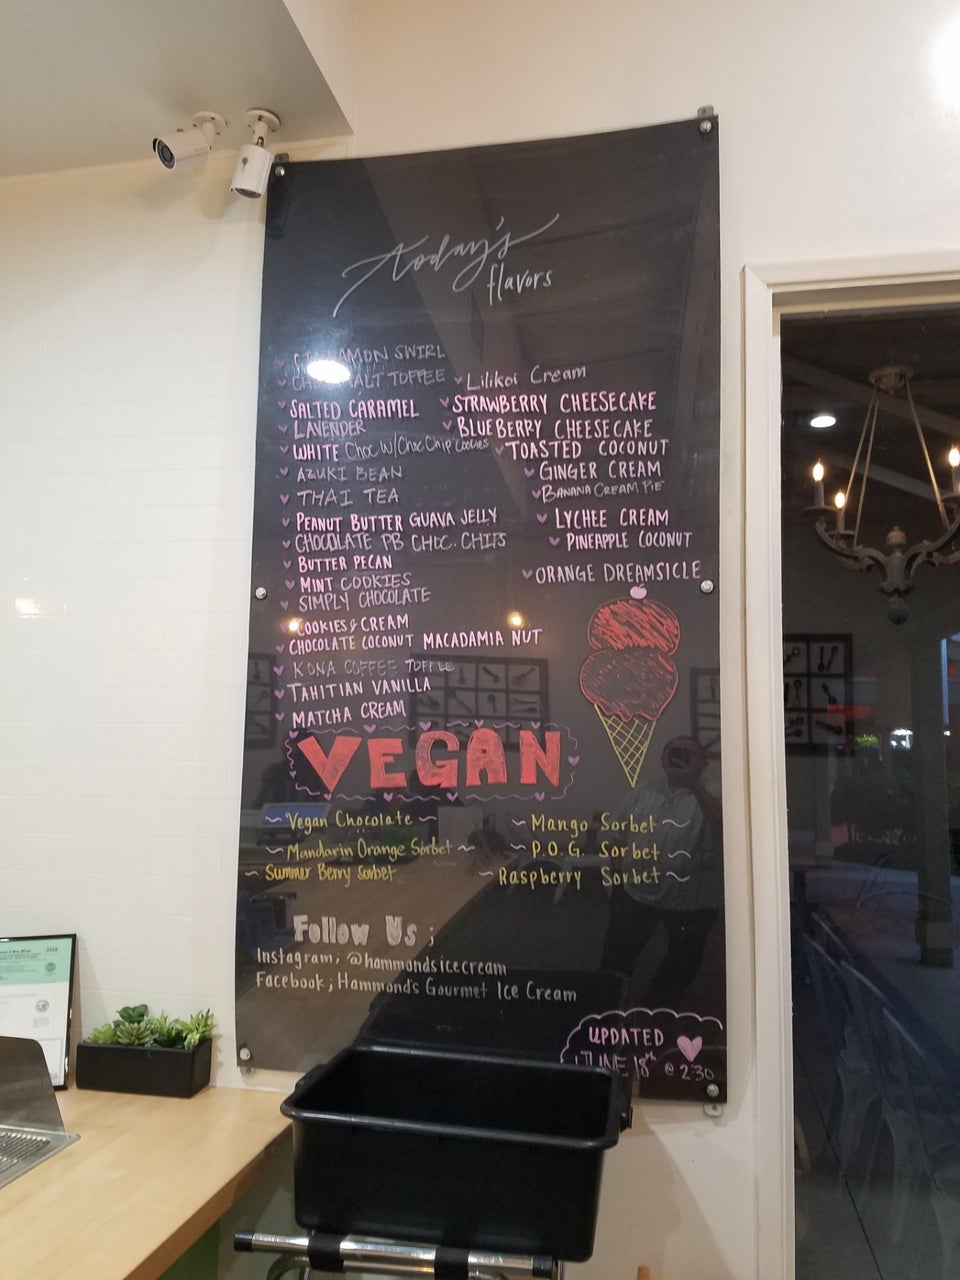 today's
flavors
CINNAMON SWIRL
CHOC MALT TOFFEE
SALTED CARAMEL
LAVENDER
WHITE Choc w/Choc Chip Cookies
AZUKI BEAN
THAI TEA
PEANUT BUTTER GUAVA JELLY
CHOCOLATE PB CHOC. CHIPS
BUTTER PECAN
MINT COOKIES
SIMPLY CHOCOLATE
COOKIES & CREAM
CHOCOLATE COCONUT MACADAMIA NUT
KONA COFFEE TOFFEE
TAHITIAN VANILLA
MATCHA CREAM
Lilikoi Cream
STRAWBERRY CHEESECAKE
BLUEBERRY CHEESECAKE
TOASTED COCONUT
GINGER CREAM
BANANA CREAM PIE
LYCHEE CREAM
PINEAPPLE COCONUT
ORANGE DREAMSICLE
VEGAN
Vegan Chocolate
Mandarin Orange Sorbet
Summer Berry Sorbet
Mango Sorbet
P.O.G. Sorbet
Raspberry Sorbet
Follow Us ;
Instagram; @hammondsicecream
Facebook; Hammond's Gourmet Ice Cream
UPDATED
JUNE 18th @ 2:30